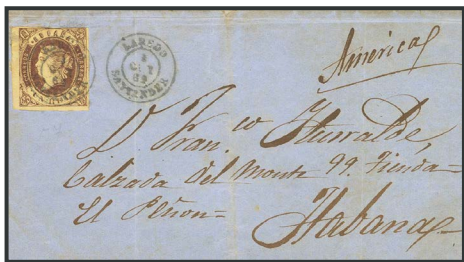 LAREDO
SANTANDER
América
D. Fran.co Iturralde,
Calzada del Monte 99. Tienda=
El Peñon=
Habana